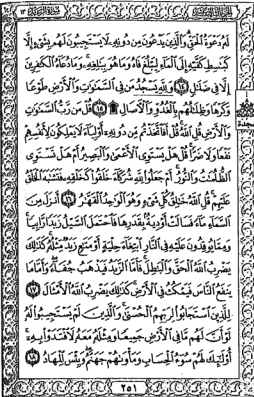 لَهُۥ دَعْوَةُ ٱلْحَقِّ وَٱلَّذِينَ يَدْعُونَ مِن دُونِهِۦ لَا يَسْتَجِيبُونَ لَهُم بِشَىْءٍ إِلَّا
كَبَٰسِطِ كَفَّيْهِ إِلَى ٱلْمَآءِ لِيَبْلُغَ فَاهُ وَمَا هُوَ بِبَٰلِغِهِۦ وَمَا دُعَآءُ ٱلْكَٰفِرِينَ
إِلَّا فِى ضَلَٰلٍ ١٤ وَلِلَّهِ يَسْجُدُ مَن فِى ٱلسَّمَٰوَٰتِ وَٱلْأَرْضِ طَوْعًا
وَكَرْهًا وَظِلَٰلُهُم بِٱلْغُدُوِّ وَٱلْءَاصَالِ ۩ ١٥ قُلْ مَن رَّبُّ ٱلسَّمَٰوَٰتِ
وَٱلْأَرْضِ قُلِ ٱللَّهُ قُلْ أَفَٱتَّخَذْتُم مِّن دُونِهِۦٓ أَوْلِيَآءَ لَا يَمْلِكُونَ لِأَنفُسِهِمْ
نَفْعًا وَلَا ضَرًّا قُلْ هَلْ يَسْتَوِى ٱلْأَعْمَىٰ وَٱلْبَصِيرُ أَمْ هَلْ تَسْتَوِى
ٱلظُّلُمَٰتُ وَٱلنُّورُ أَمْ جَعَلُوا۟ لِلَّهِ شُرَكَآءَ خَلَقُوا۟ كَخَلْقِهِۦ فَتَشَٰبَهَ ٱلْخَلْقُ
عَلَيْهِمْ قُلِ ٱللَّهُ خَٰلِقُ كُلِّ شَىْءٍ وَهُوَ ٱلْوَٰحِدُ ٱلْقَهَّٰرُ ١٦ أَنزَلَ مِنَ
ٱلسَّمَآءِ مَآءً فَسَالَتْ أَوْدِيَةٌۢ بِقَدَرِهَا فَٱحْتَمَلَ ٱلسَّيْلُ زَبَدًا رَّابِيًا
وَمِمَّا يُوقِدُونَ عَلَيْهِ فِى ٱلنَّارِ ٱبْتِغَآءَ حِلْيَةٍ أَوْ مَتَٰعٍ زَبَدٌ مِّثْلُهُۥ كَذَٰلِكَ
يَضْرِبُ ٱللَّهُ ٱلْحَقَّ وَٱلْبَٰطِلَ فَأَمَّا ٱلزَّبَدُ فَيَذْهَبُ جُفَآءً وَأَمَّا مَا
يَنفَعُ ٱلنَّاسَ فَيَمْكُثُ فِى ٱلْأَرْضِ كَذَٰلِكَ يَضْرِبُ ٱللَّهُ ٱلْأَمْثَالَ ١٧
لِلَّذِينَ ٱسْتَجَابُوا۟ لِرَبِّهِمُ ٱلْحُسْنَىٰ وَٱلَّذِينَ لَمْ يَسْتَجِيبُوا۟ لَهُۥ
لَوْ أَنَّ لَهُم مَّا فِى ٱلْأَرْضِ جَمِيعًا وَمِثْلَهُۥ مَعَهُۥ لَٱفْتَدَوْا۟ بِهِۦٓ
أُو۟لَٰٓئِكَ لَهُمْ سُوٓءُ ٱلْحِسَابِ وَمَأْوَىٰهُمْ جَهَنَّمُ وَبِئْسَ ٱلْمِهَادُ ١٨
٢٥١